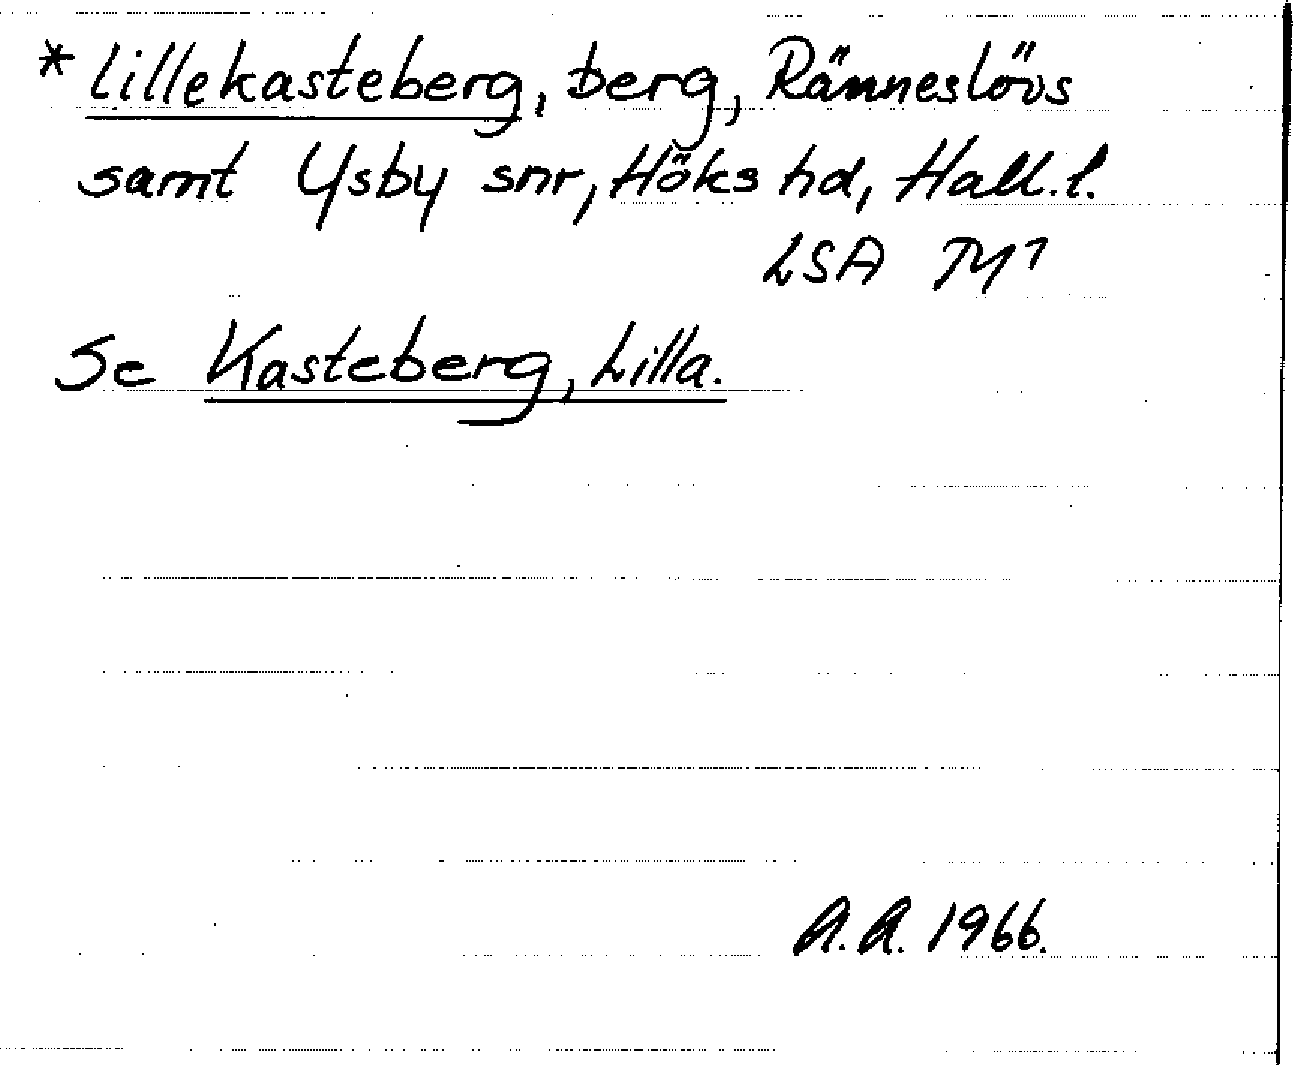 *Lillekasteberg, berg, Ränneslövs
samt Ysby snr, Höks hd, Hall.l.
LSA
Se Kasteberg, Lilla.
A.A. 1966.